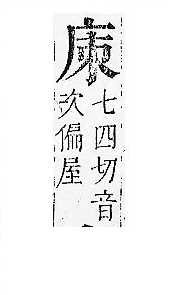 七四切音
次偏屋